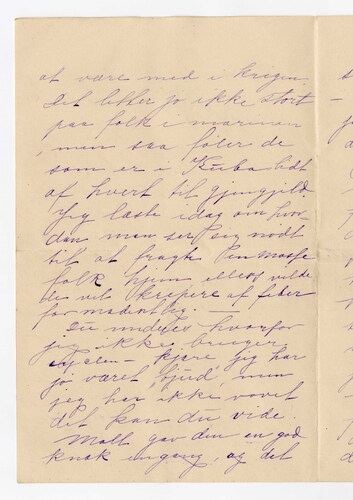 at være med i krigen.
Det letter jo ikke stort
paa folk i marinen
, men saa føler de
som er i Kuba lidt
af hvert til gjengjeld.
Jeg læste idag om hvor-
dan man ser sig nødt
til at fragte en masse
folk hjem ellers vilde
de vel krepere af feber
formodentlig. —
Du undres hvorfor
jeg ikke bruger
— kjære, jeg har
jo været "bjud", men
jeg har ikke vovet
det kan du vide.
Matt gav den en god
knæk engang, og det